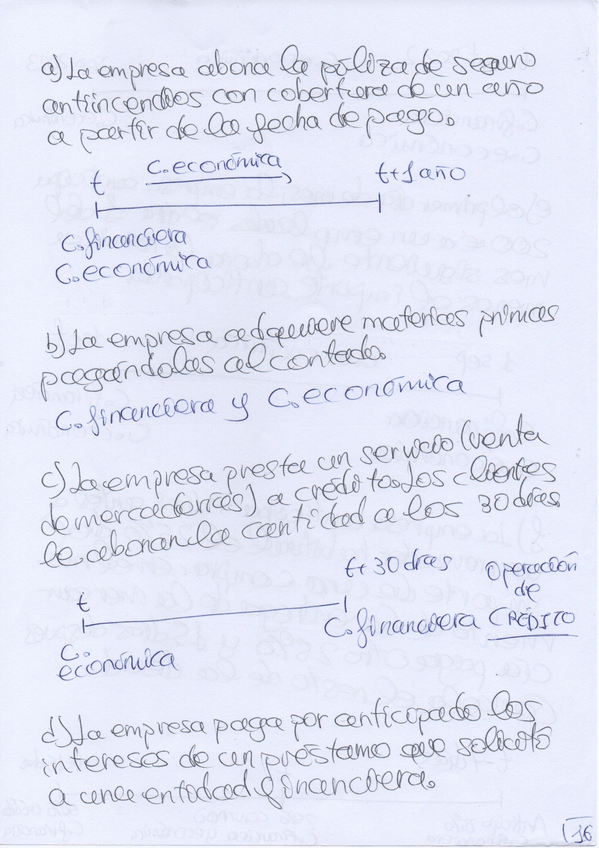 a) La empresa abona la póliza de seguro
antiincendios con cobertura de un año
a partir de la fecha de pago.
C. económica
t
t+1 año
C. financiera
C. económica
b) La empresa adquiere materias primas
pagándolas al contado.
C. financiera y C. económica
c) La empresa presta un servicio (venta
de mercaderías) a crédito. Los clientes
le abonan la cantidad a los 30 días.
t
t+30 días
Operación
de
CRÉDITO
C. financiera
C.
económica
d) La empresa paga por anticipado los
intereses de un préstamo que solicitó
a una entidad financiera.
16